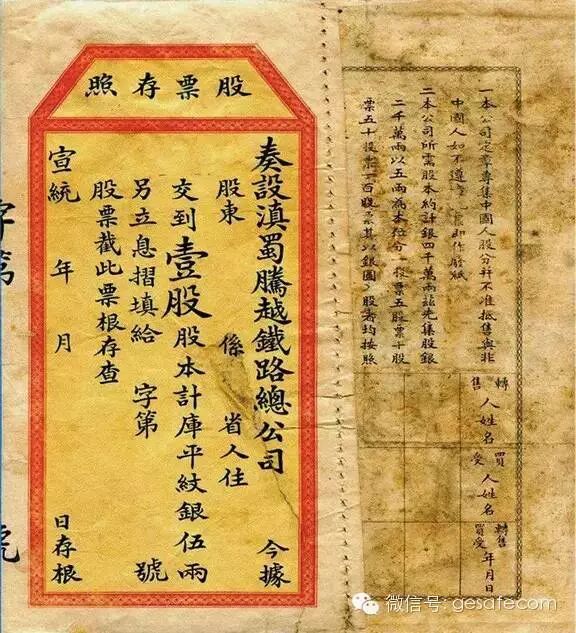 股票存照
奏設滇蜀騰越鐵路總公司 今據
股東 係 省人住
交到壹股股本計庫平紋銀伍兩
另立息摺填給 字第 號
股票截此票根存查
宣統 年 月 日存根
字第 號
一本公司定章專集中國人股分幷不准抵售與非
中國人如不遵 即作廢紙
二本公司所需股本約計銀四千萬兩茲先集股銀
二千萬兩以五兩為 分一股票五股票十股
票五十股票一百股票其以銀圓 股者均按照
轉售人姓名
買受人姓名
轉售買受年月日
微信号: gesafecom